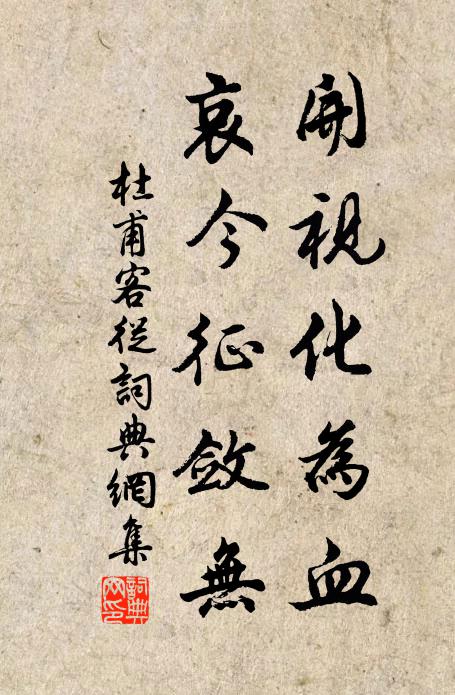 開視化為血
哀今征斂無
杜甫客從詞典網集
詞典
网印